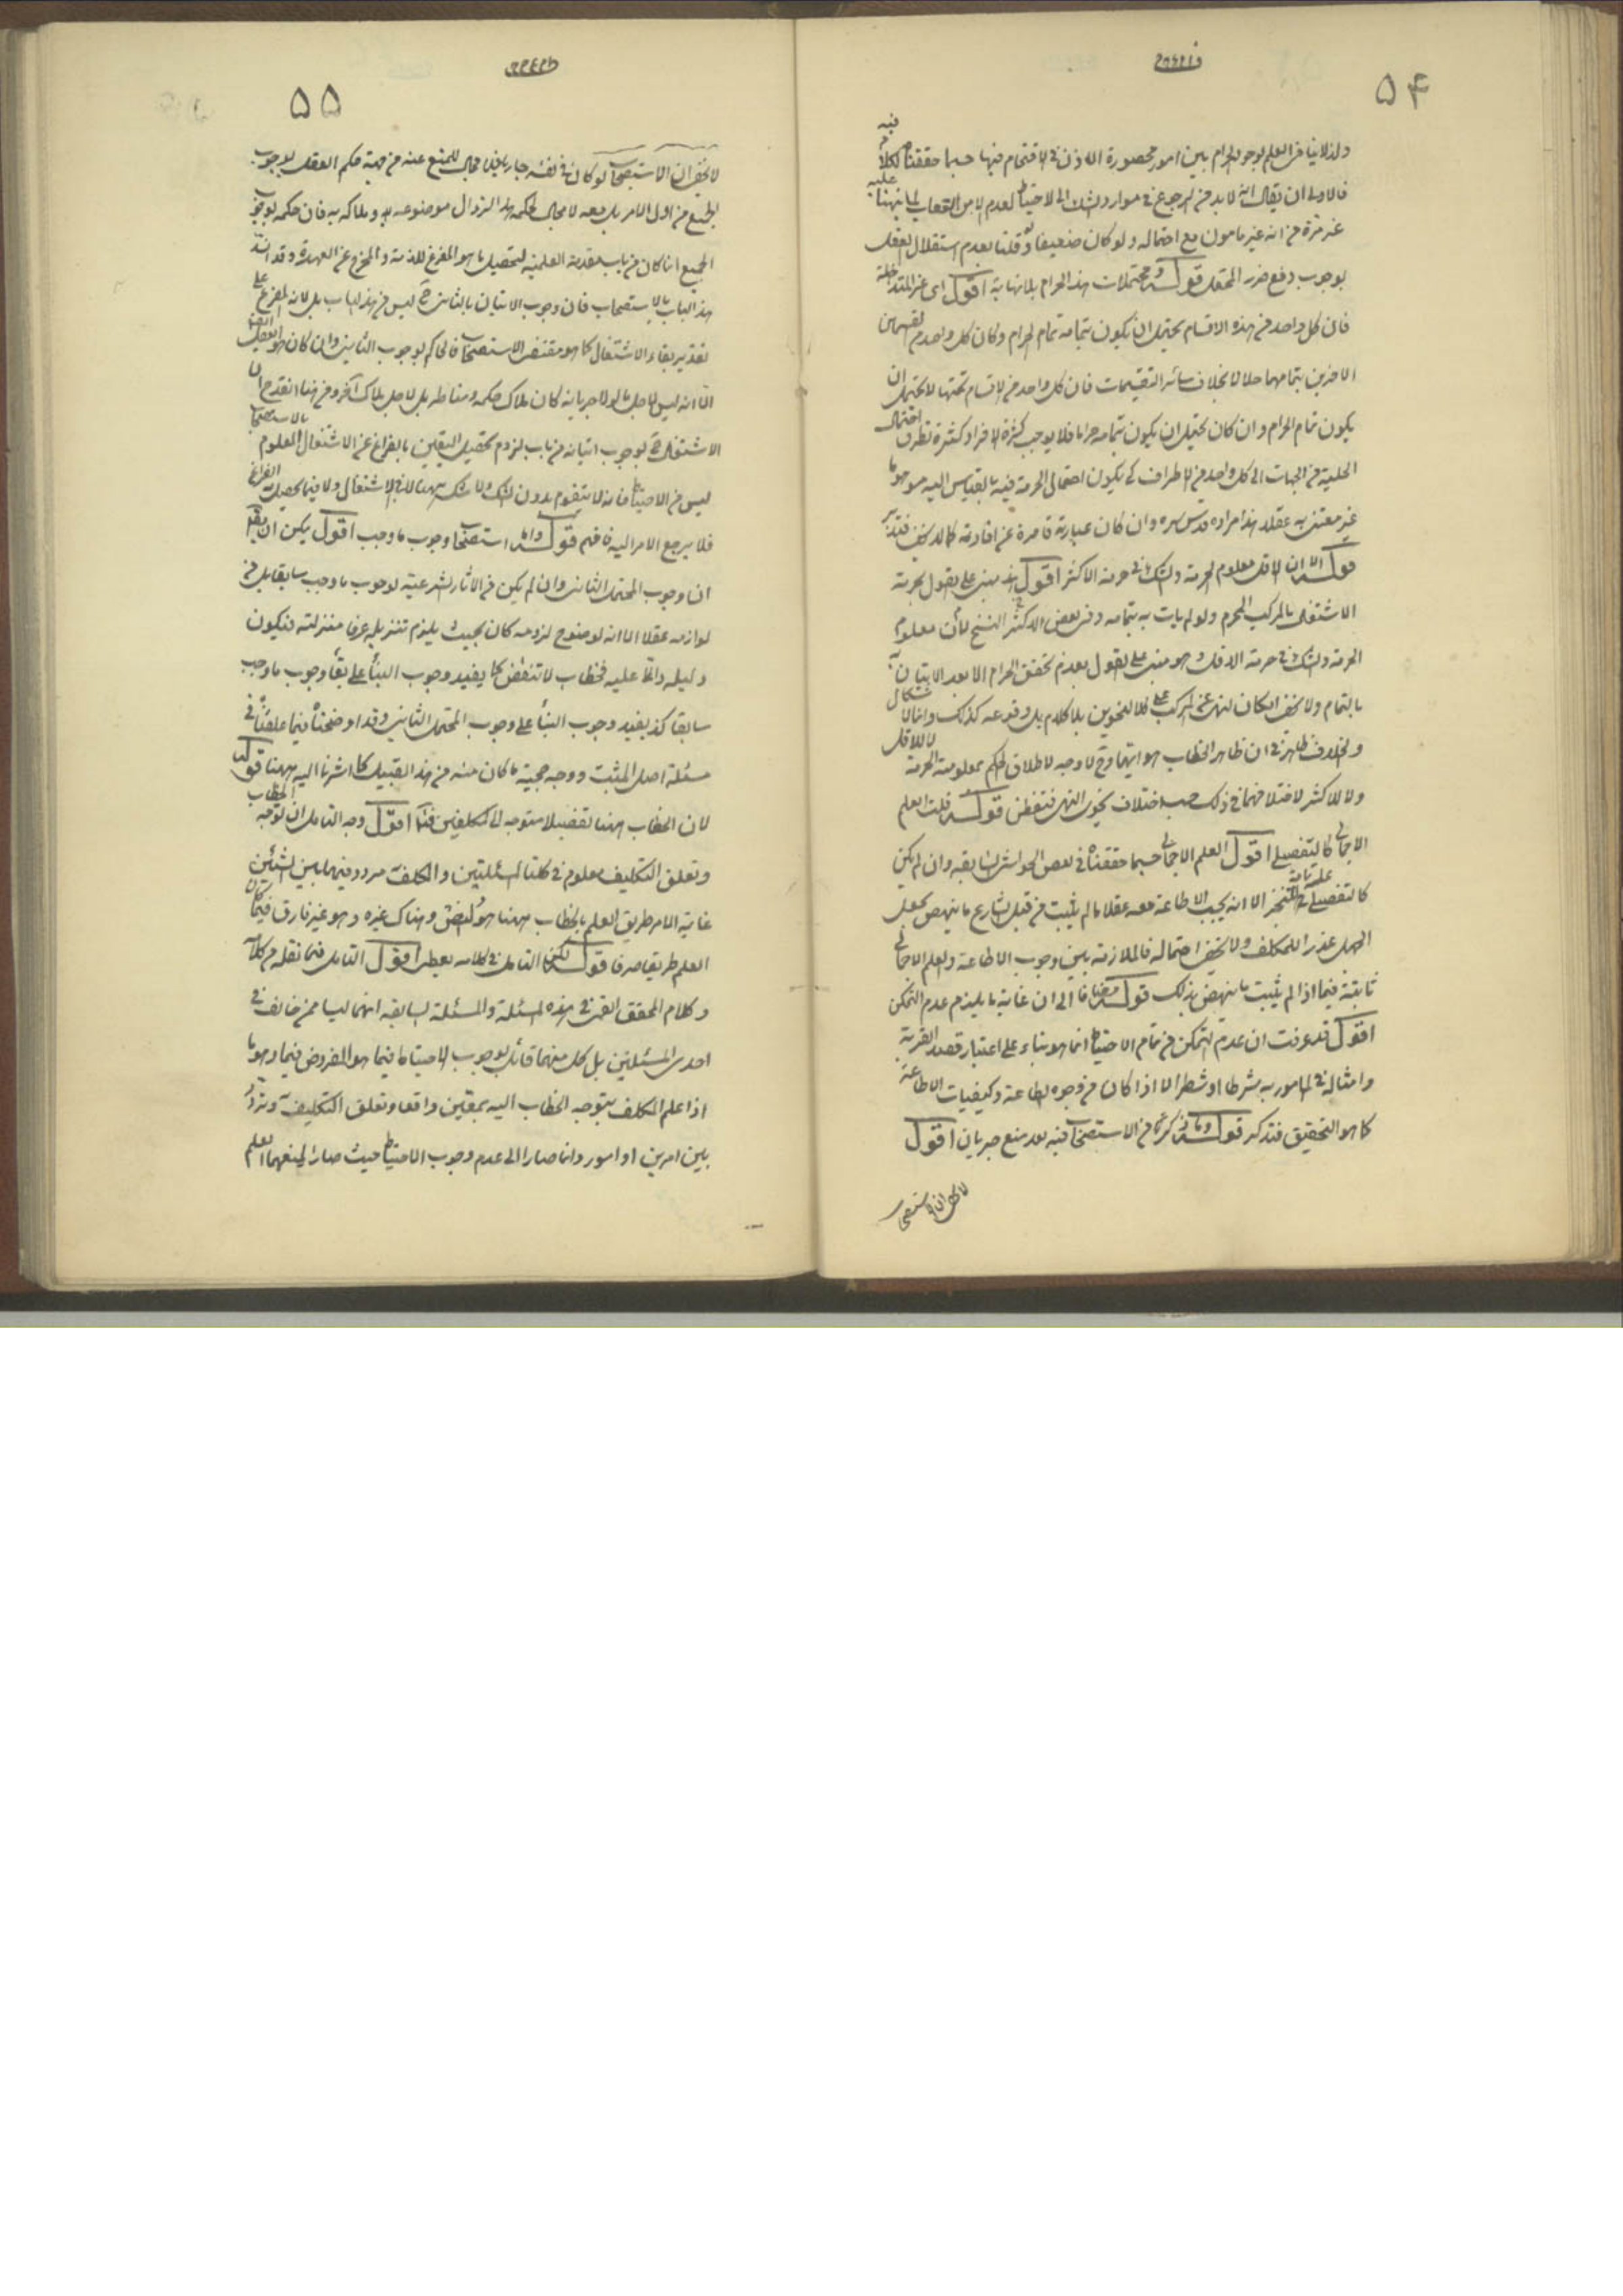 ۵۴
ولذا لا ينافي العلم بوجود الحرام بين امور محصورة الاذن في الاقتحام فيها حسبما حققناه
فالاولى ان يقال انه لا بد من الرجوع في موارد الشك الى الاحتياط لعدم الامن من العقاب
غير مرة من انه غير مامون مع احتماله ولو كان ضعيفا وقلنا بعدم استقلال العقل
بوجوب دفع ضرر المحتمل قوله ومحتملات هذا الحرام بلا نهاية اقول اى غير المتداخلة
فان كل واحد من هذه الاقسام يحتمل ان يكون بتمامه تمام الحرام وكان كل واحد من القسمين
الاخرين بتمامهما حلالا بخلاف سائر التقسيمات فان كل واحد من الاقسام تحتها لا يحتمل ان
يكون تمام الحرام وان كان يحتمل ان يكون بتمامه حراما فلا يوجب كثرة الافراد كثرة تطرق احتمال
الحلية من الجهات الى كل واحد من الاطراف كى يكون احتمال الحرمة فيه بالقياس اليه موهوما
غير معتنى به عقلا هذا مراده قدس سره وان كان عبارته قاصرة عن افادته كما لا يخفى فتدبر
قوله الا ان الاقل معلوم الحرمة والشك في حرمة الاكثر اقول هذا مبنى على القول بحرمة
الاشتغال بالمركب المحرم ولو لم يات به بتمامه وفى بعض النسخ لان الاكثر معلوم
الحرمة والشك في حرمة الاقل وهو مبنى على القول بعدم تحقق الحرام الا بعد الاتيان به
بالتمام ولا يخفى امكان النهى عن المركب على كلا النحوين بلا كلام بل وقوعه كذلك وانما الاشكال
والخلاف في ان ظاهر الخطاب هو ايهما وح لا وجه لاطلاق الحكم بمعلومية الحرمة لا للاقل
ولا للاكثر لاختلافهما في ذلك حسب اختلاف نحوى النهى فتفطن قوله قلت العلم
الاجمالى كالتفصيلى اقول العلم الاجمالى حسبما حققناه في بعض الحواشى السابقة وان لم يكن
كالتفصيلى علة تامة للتنجز الا انه يجب الاطاعة معه عقلا ما لم يثبت من قبل الشارع ما ينهض بجعل
الجهل عذرا للمكلف ولا يخفى احتماله فالملازمة بين وجوب الاطاعة والعلم الاجمالى
ثابتة فيما اذا لم يثبت ما ينهض بذلك قوله مضافا الى ان غاية ما يلزم عدم التمكن
اقول قد عرفت ان عدم التمكن من تمام الاحتياط انما هو بناء على اعتبار قصد القربة
وامثاله في المامور به شرطا او شطرا لا اذا كان من وجوه الطاعة وكيفيات الاطاعة
كما هو التحقيق فتذكر قوله وما ذكرناه من الاستصحاب فيه بعد منع جريان اقول
۵۵
لا يخفى ان الاستصحاب لو كان في نفسه جاريا فلا مجال للمنع عنه من جهة حكم العقل بوجوب
الجميع من اول الامر بل معه لا مجال لحكمه هذا لزوال موضوعه به وملاكه به فان حكمه بوجوب
الجميع انما كان من باب المقدمة العلمية لتحصيل ما هو المفرغ للذمة والمخرج عن العهدة وقد انسد
هذا الباب بالاستصحاب فان وجوب الاتيان بالثانى ح ليس من هذا الباب بل لانه المفرغ على
تقدير بقاء الاشتغال كما هو مقتضى الاستصحاب فالحاكم بوجوب الثانى وان كان هو العقل ايضا
الا انه ليس لاجل ما لولا جريانه كان ملاك حكمه ومناطه بل لاجل ملاك آخر ومن هنا انقدح ان
الاشتغال ح بوجوب اتيانه من باب لزوم تحصيل اليقين بالفراغ عن الاشتغال المعلوم بالاستصحاب
ليس من الاحتياط فانه لا يتقوم بدون الشك ولا شك هيهنا لا في الاشتغال ولا فيما يحصل به الفراغ
فلا يرجع الامر اليه فافهم قوله واما استصحاب وجوب ما وجب اقول يمكن ان يقال
ان وجوب المحتمل الثانى وان لم يكن من الآثار الشرعية لوجوب ما وجب سابقا بل من
لوازمه عقلا الا انه لوضوح لزومه كان بحيث يلزم تنزيله عرفا منزلته فيكون
دليله دالا عليه فخطاب لا تنقض كما يفيد وجوب البناء على بقاء وجوب ما وجب
سابقا كذا يفيد وجوب البناء على وجوب المحتمل الثانى وقد اوضحناه فيما علقناه في
مسئلة اصل المثبت ووجه حجية ما كان منه من هذا القبيل كما اشرنا اليه هيهنا قوله
لان الخطاب هنا تفصيلا متوجه الى المكلفين فتأمل اقول وجه التامل ان توجه الخطاب
وتعلق التكليف معلوم في كلتا المسئلتين والمكلف به مردد فيهما بين الشيئين
غاية الامر طريق العلم بالخطاب هيهنا هو النص وهناك غيره وهو غير فارق فيما كان
العلم طريقا صرفا قوله لكن التامل في كلامه يعطى اقول التامل فيما نقله من كلامه
وكلام المحقق القمى في هذه المسئلة والمسئلة السابقة انهما ليسا ممن خالف في
احدى المسئلتين بل كل منهما قائل بوجوب الاحتياط فيما هو المفروض فيها وهو ما
اذا علم المكلف بتوجه الخطاب اليه بمعين واقعا وتعلق التكليف به وتردد
بين امرين او امور وانما صارا الى عدم وجوب الاحتياط حيث صارا لمنعهما العلم